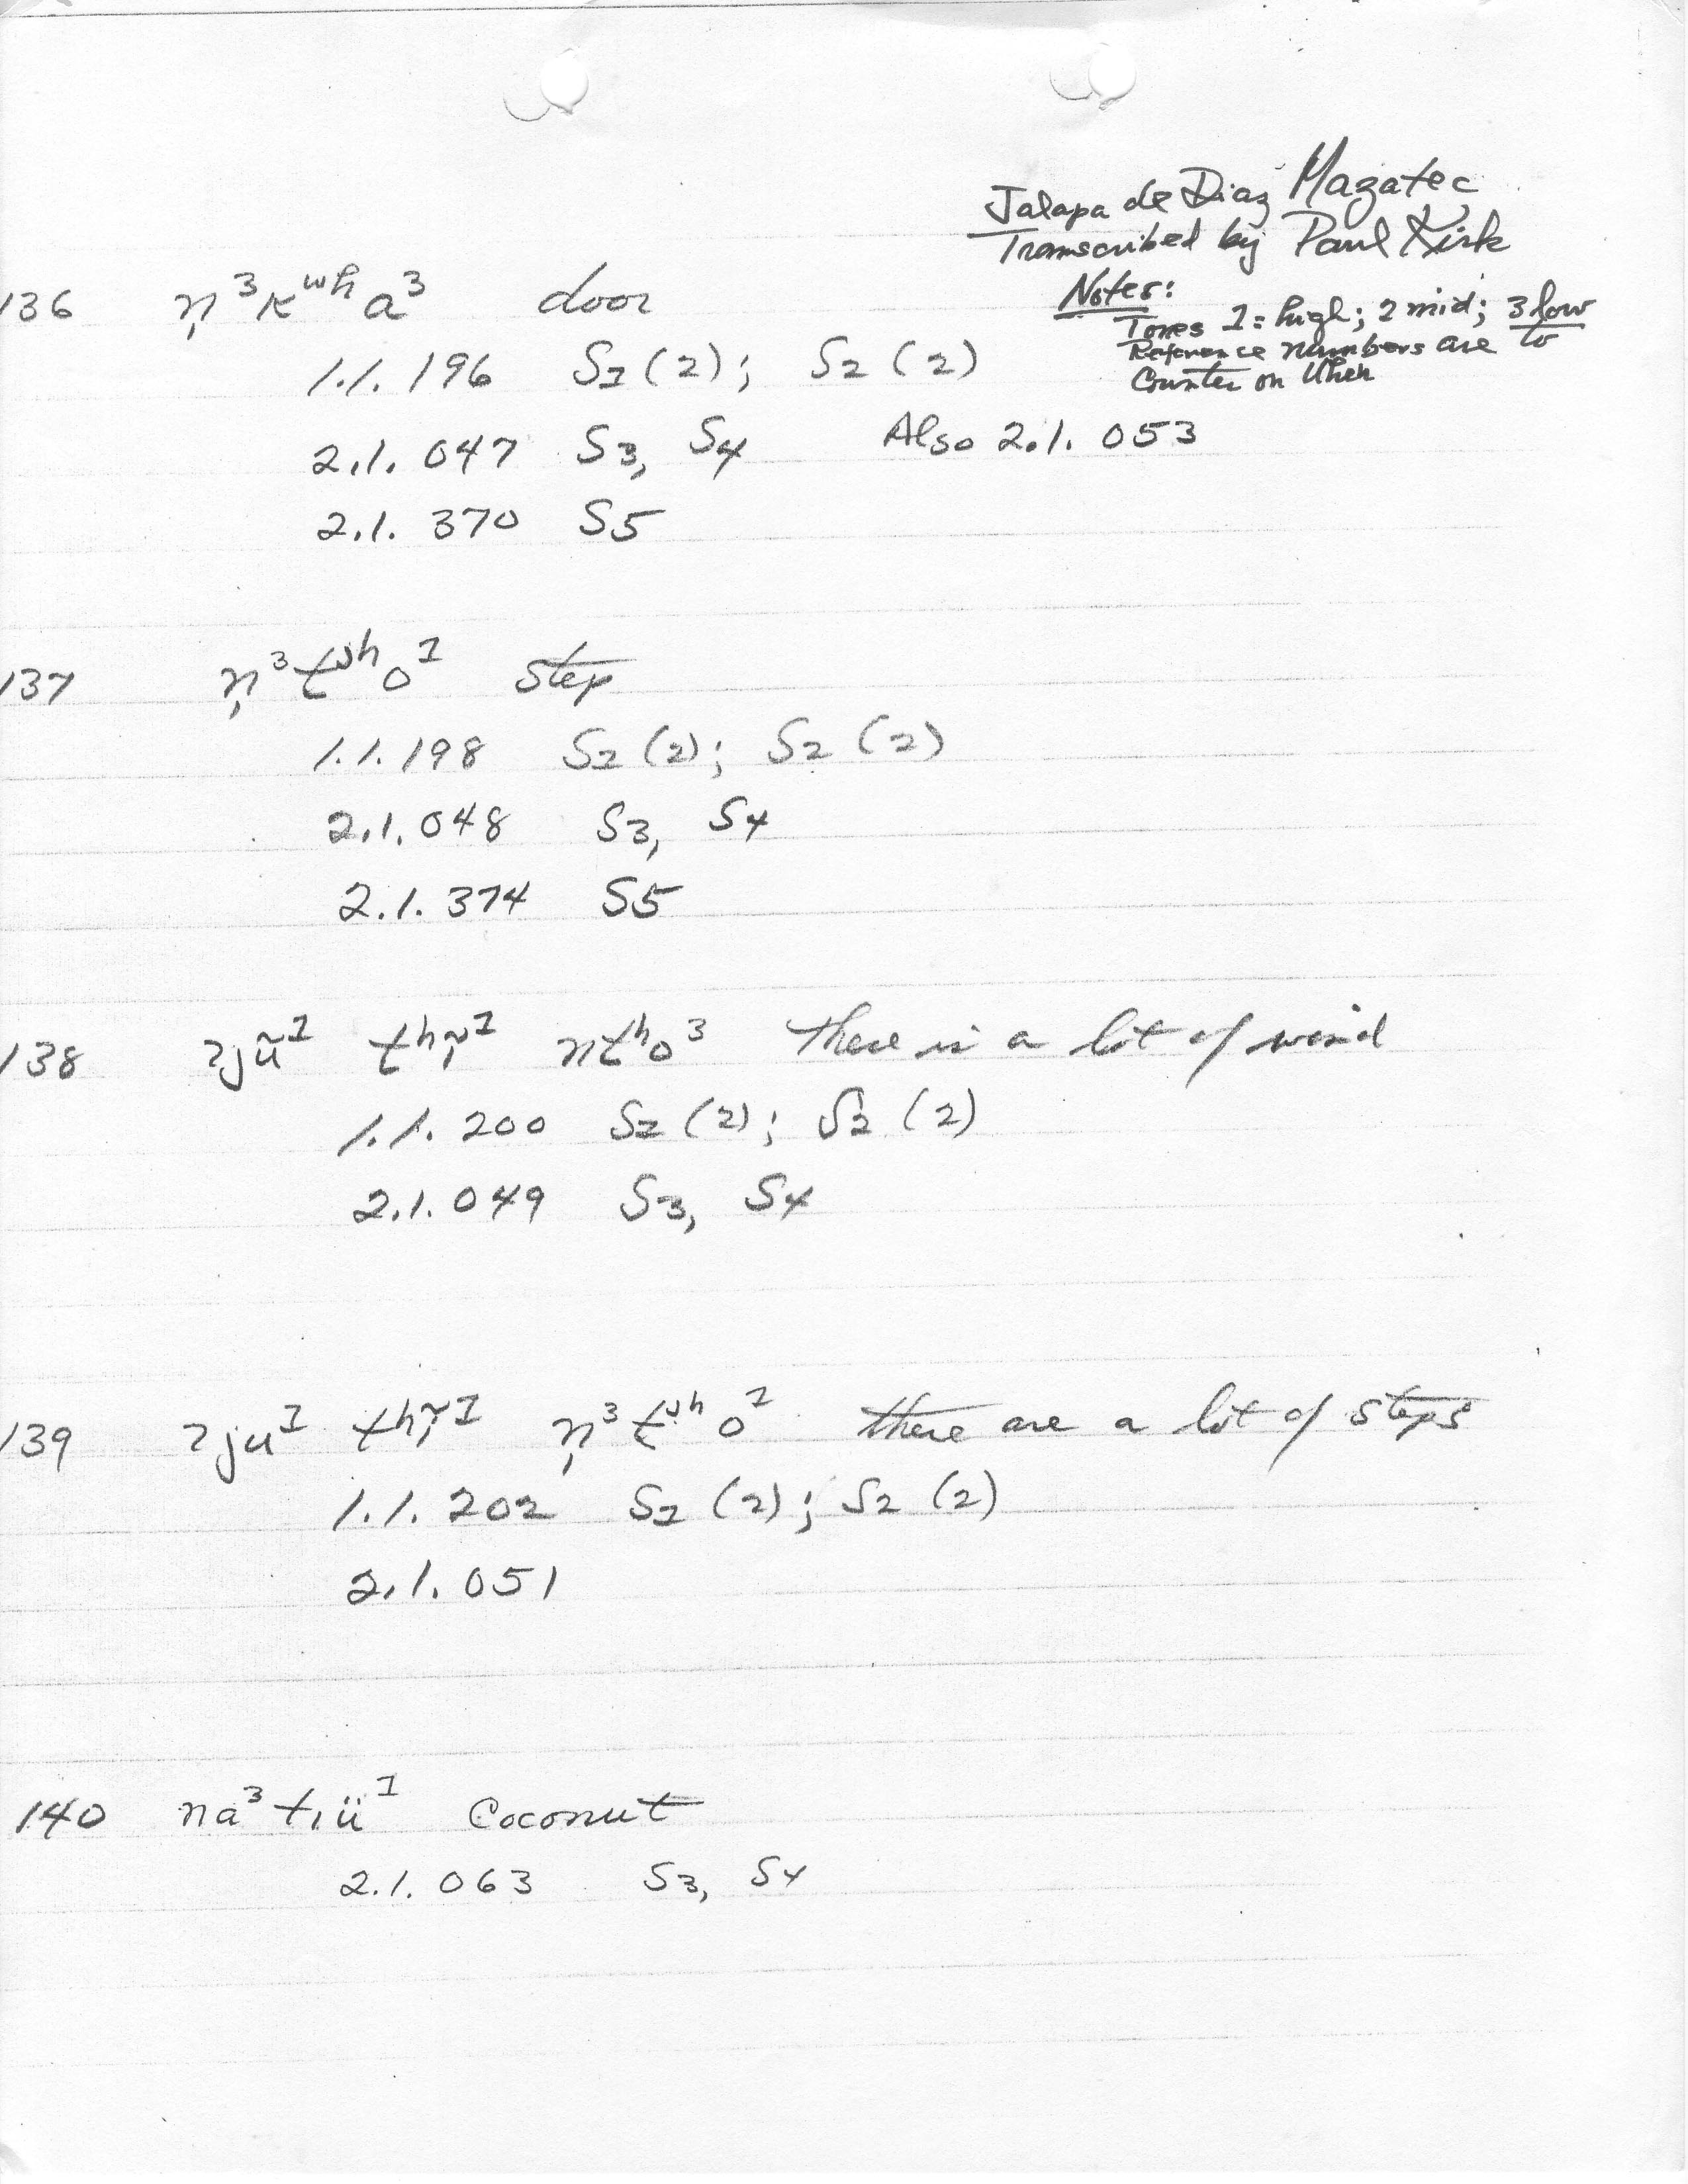 Jalapa de Diaz Mazatec
Transcribed by Paul Kirk
Notes:
Tones 1 = high; 2 mid; 3 low
Reference numbers are to
Counter on Uher
136 n̩³kʷʰa³ door
1.1.196 S1 (2); S2 (2)
2.1.047 S3, S4 Also 2.1.053
2.1.370 S5
137 n̩³tʷʰo¹ step
1.1.198 S1 (2); S2 (2)
2.1.048 S3, S4
2.1.374 S5
138 ʔjũ¹ thĩ¹ ntʰo³ there is a lot of wind
1.1.200 S1 (2); S2 (2)
2.1.049 S3, S4
139 ʔju¹ thĩ¹ n̩³tʷʰo¹ there are a lot of steps
1.1.202 S1 (2); S2 (2)
2.1.051
140 na³ Coconut
2.1.063 S3, S4